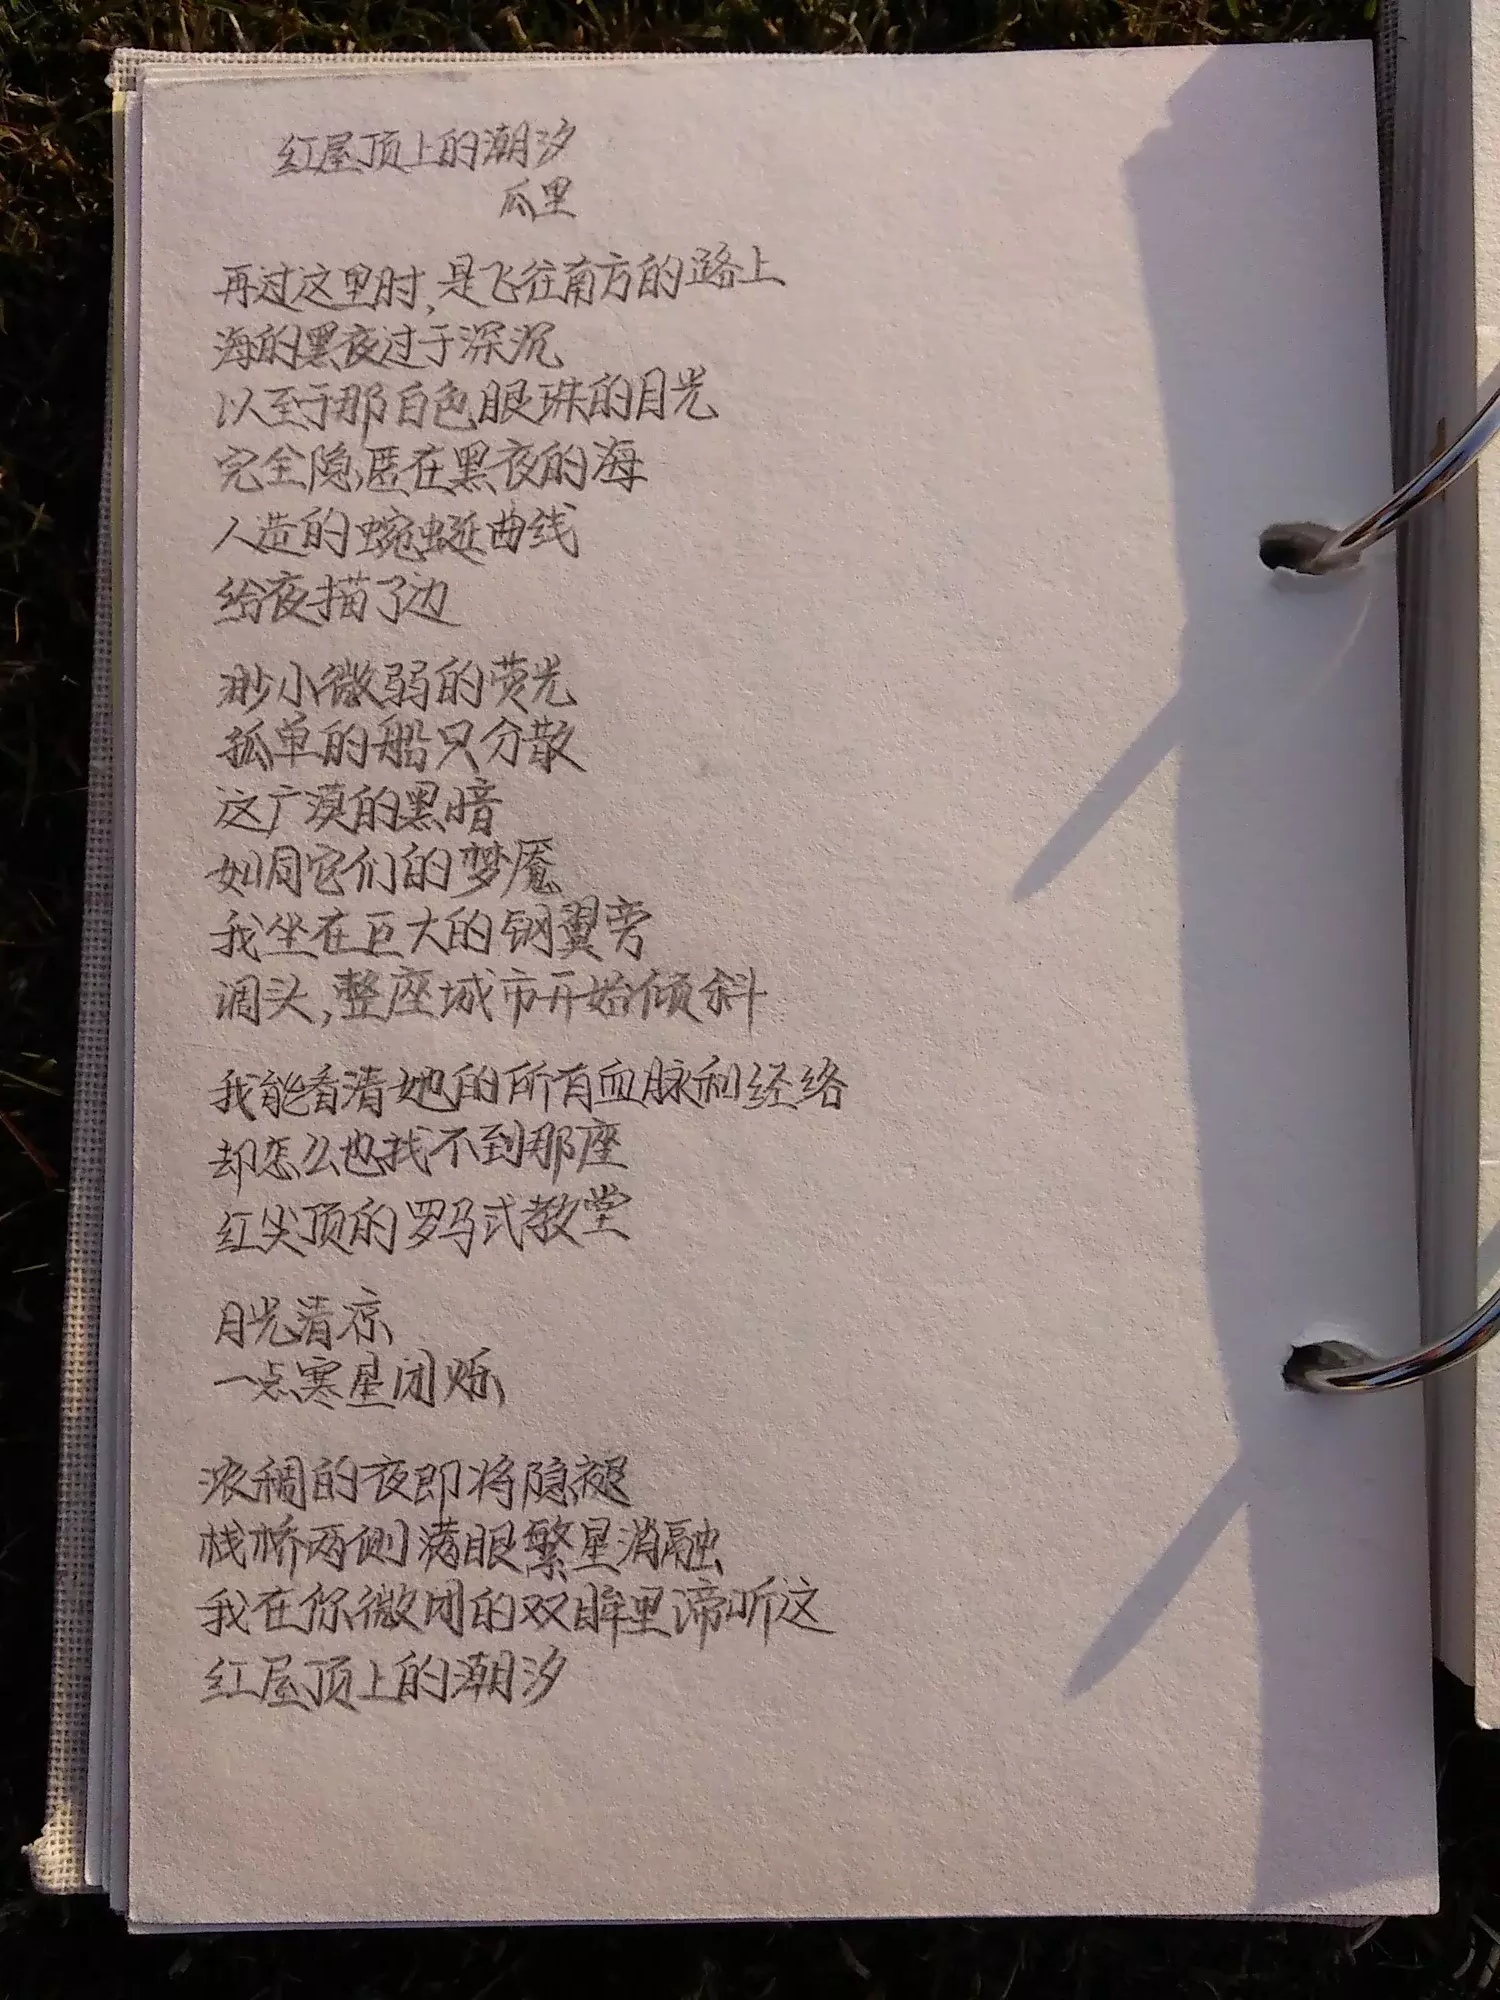 红屋顶上的潮汐
瓜里
再过这里时,是飞往南方的路上
海的黑夜过于深沉
以至于那白色眼珠的目光
完全隐匿在黑夜的海
人造的蜿蜒曲线
给夜描了边
渺小微弱的荧光
孤单的船只分散
这广漠的黑暗
如同它们的梦魇
我坐在巨大的钢翼旁
调头,整座城市开始倾斜
我能看清她的所有血脉和经络
却怎么也找不到那座
红尖顶的罗马式教堂
月光清凉
一点寒星闭烁
浓稠的夜即将隐褪
栈桥两侧满眼繁星消融
我在你微闭的双眸里谛听这
红屋顶上的潮汐